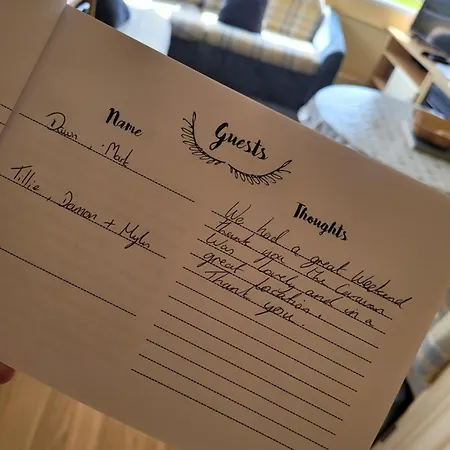 Guests
Name
Dawn, Mark
Tillie, Damon + Myles
Thoughts
We had a great Weekend
thank you. The Caravan
Was lovely and in a
great location.
Thank you.